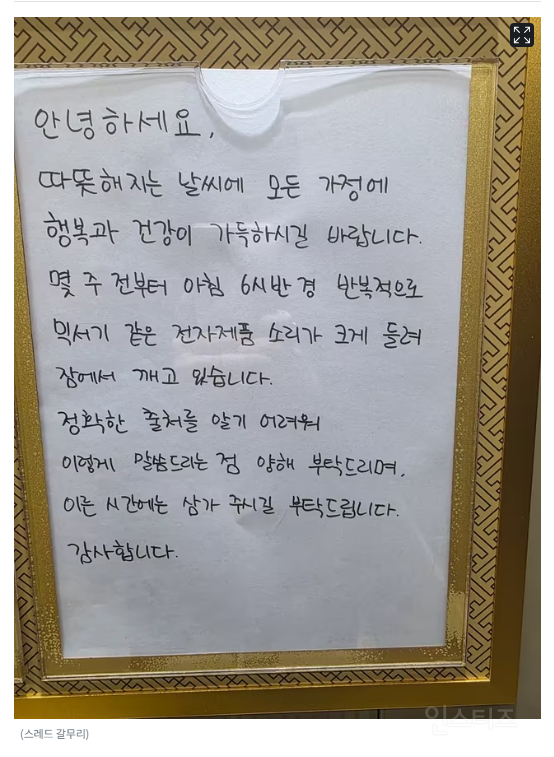 안녕하세요,
따뜻해지는 날씨에 모든 가정에
행복과 건강이 가득하시길 바랍니다.
몇 주 전부터 아침 6시반경 반복적으로
믹서기 같은 전자제품 소리가 크게 들려
잠에서 깨고 있습니다.
정확한 출처를 알기 어려워
이렇게 말씀드리는 점 양해 부탁드리며,
이른 시간에는 삼가 주시길 부탁드립니다.
감사합니다.
인스티즈
(스레드 갈무리)